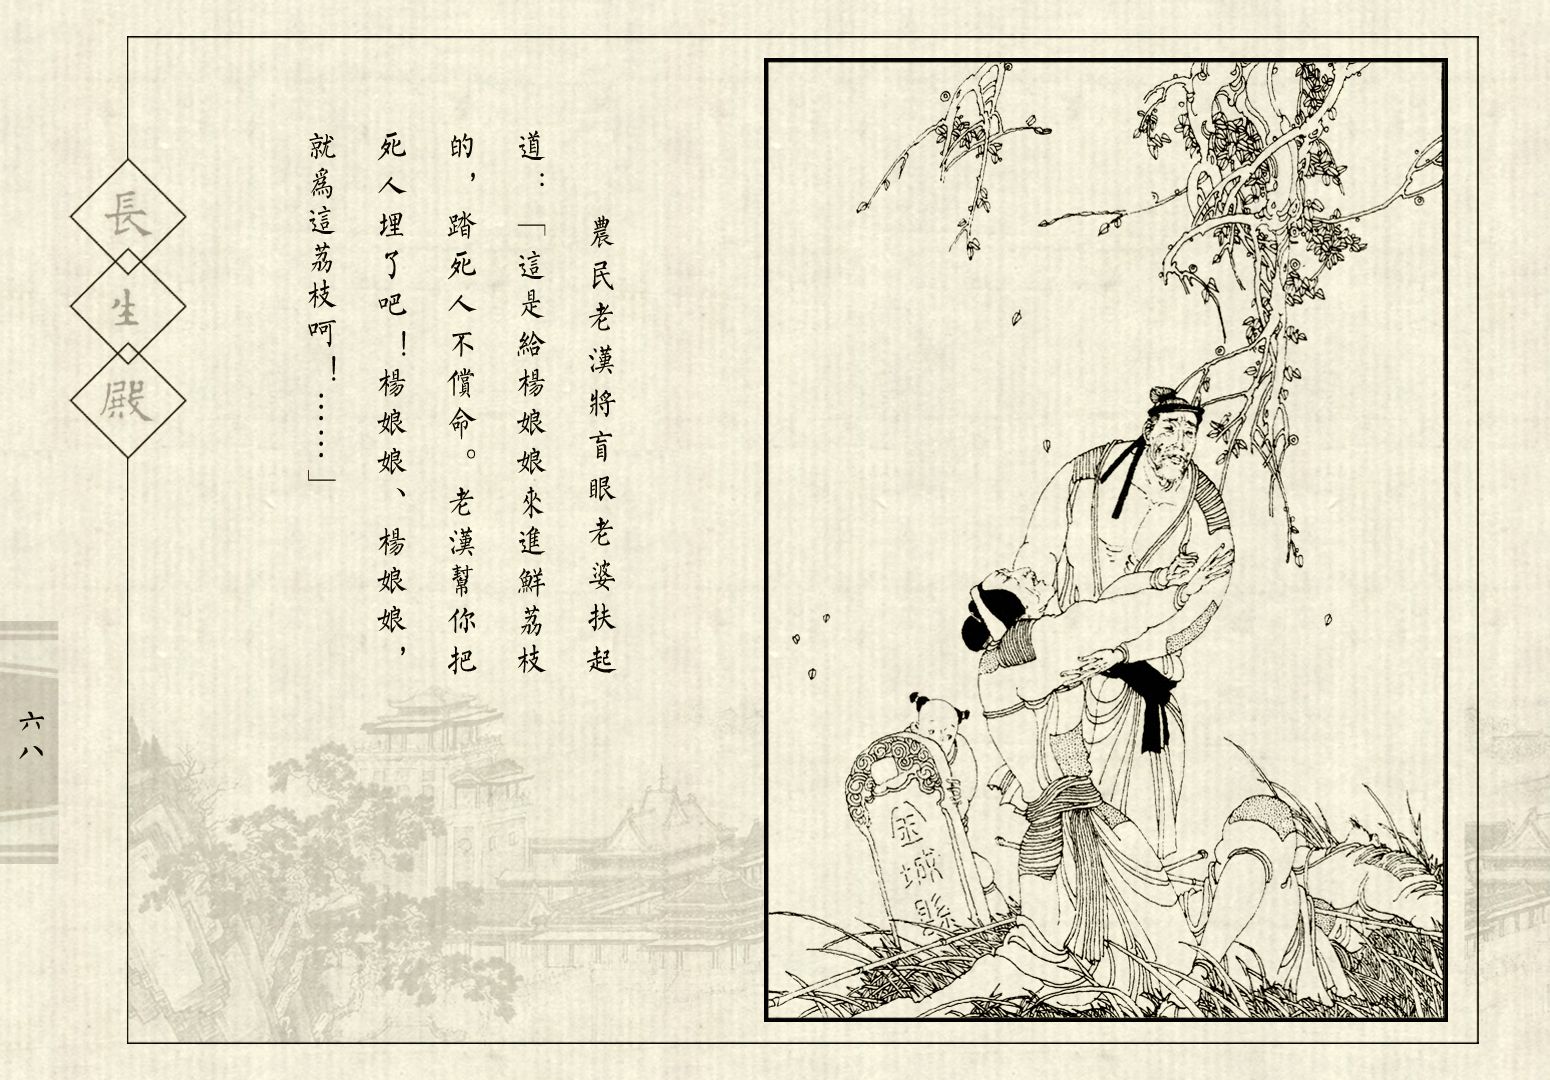 農民老漢將盲眼老婆扶起
道：「這是給楊娘娘來進鮮荔枝
的，踏死人不償命。老漢幫你把
死人埋了吧！楊娘娘、楊娘娘，
就爲這荔枝呵！……」
金城縣
長生殿
六八